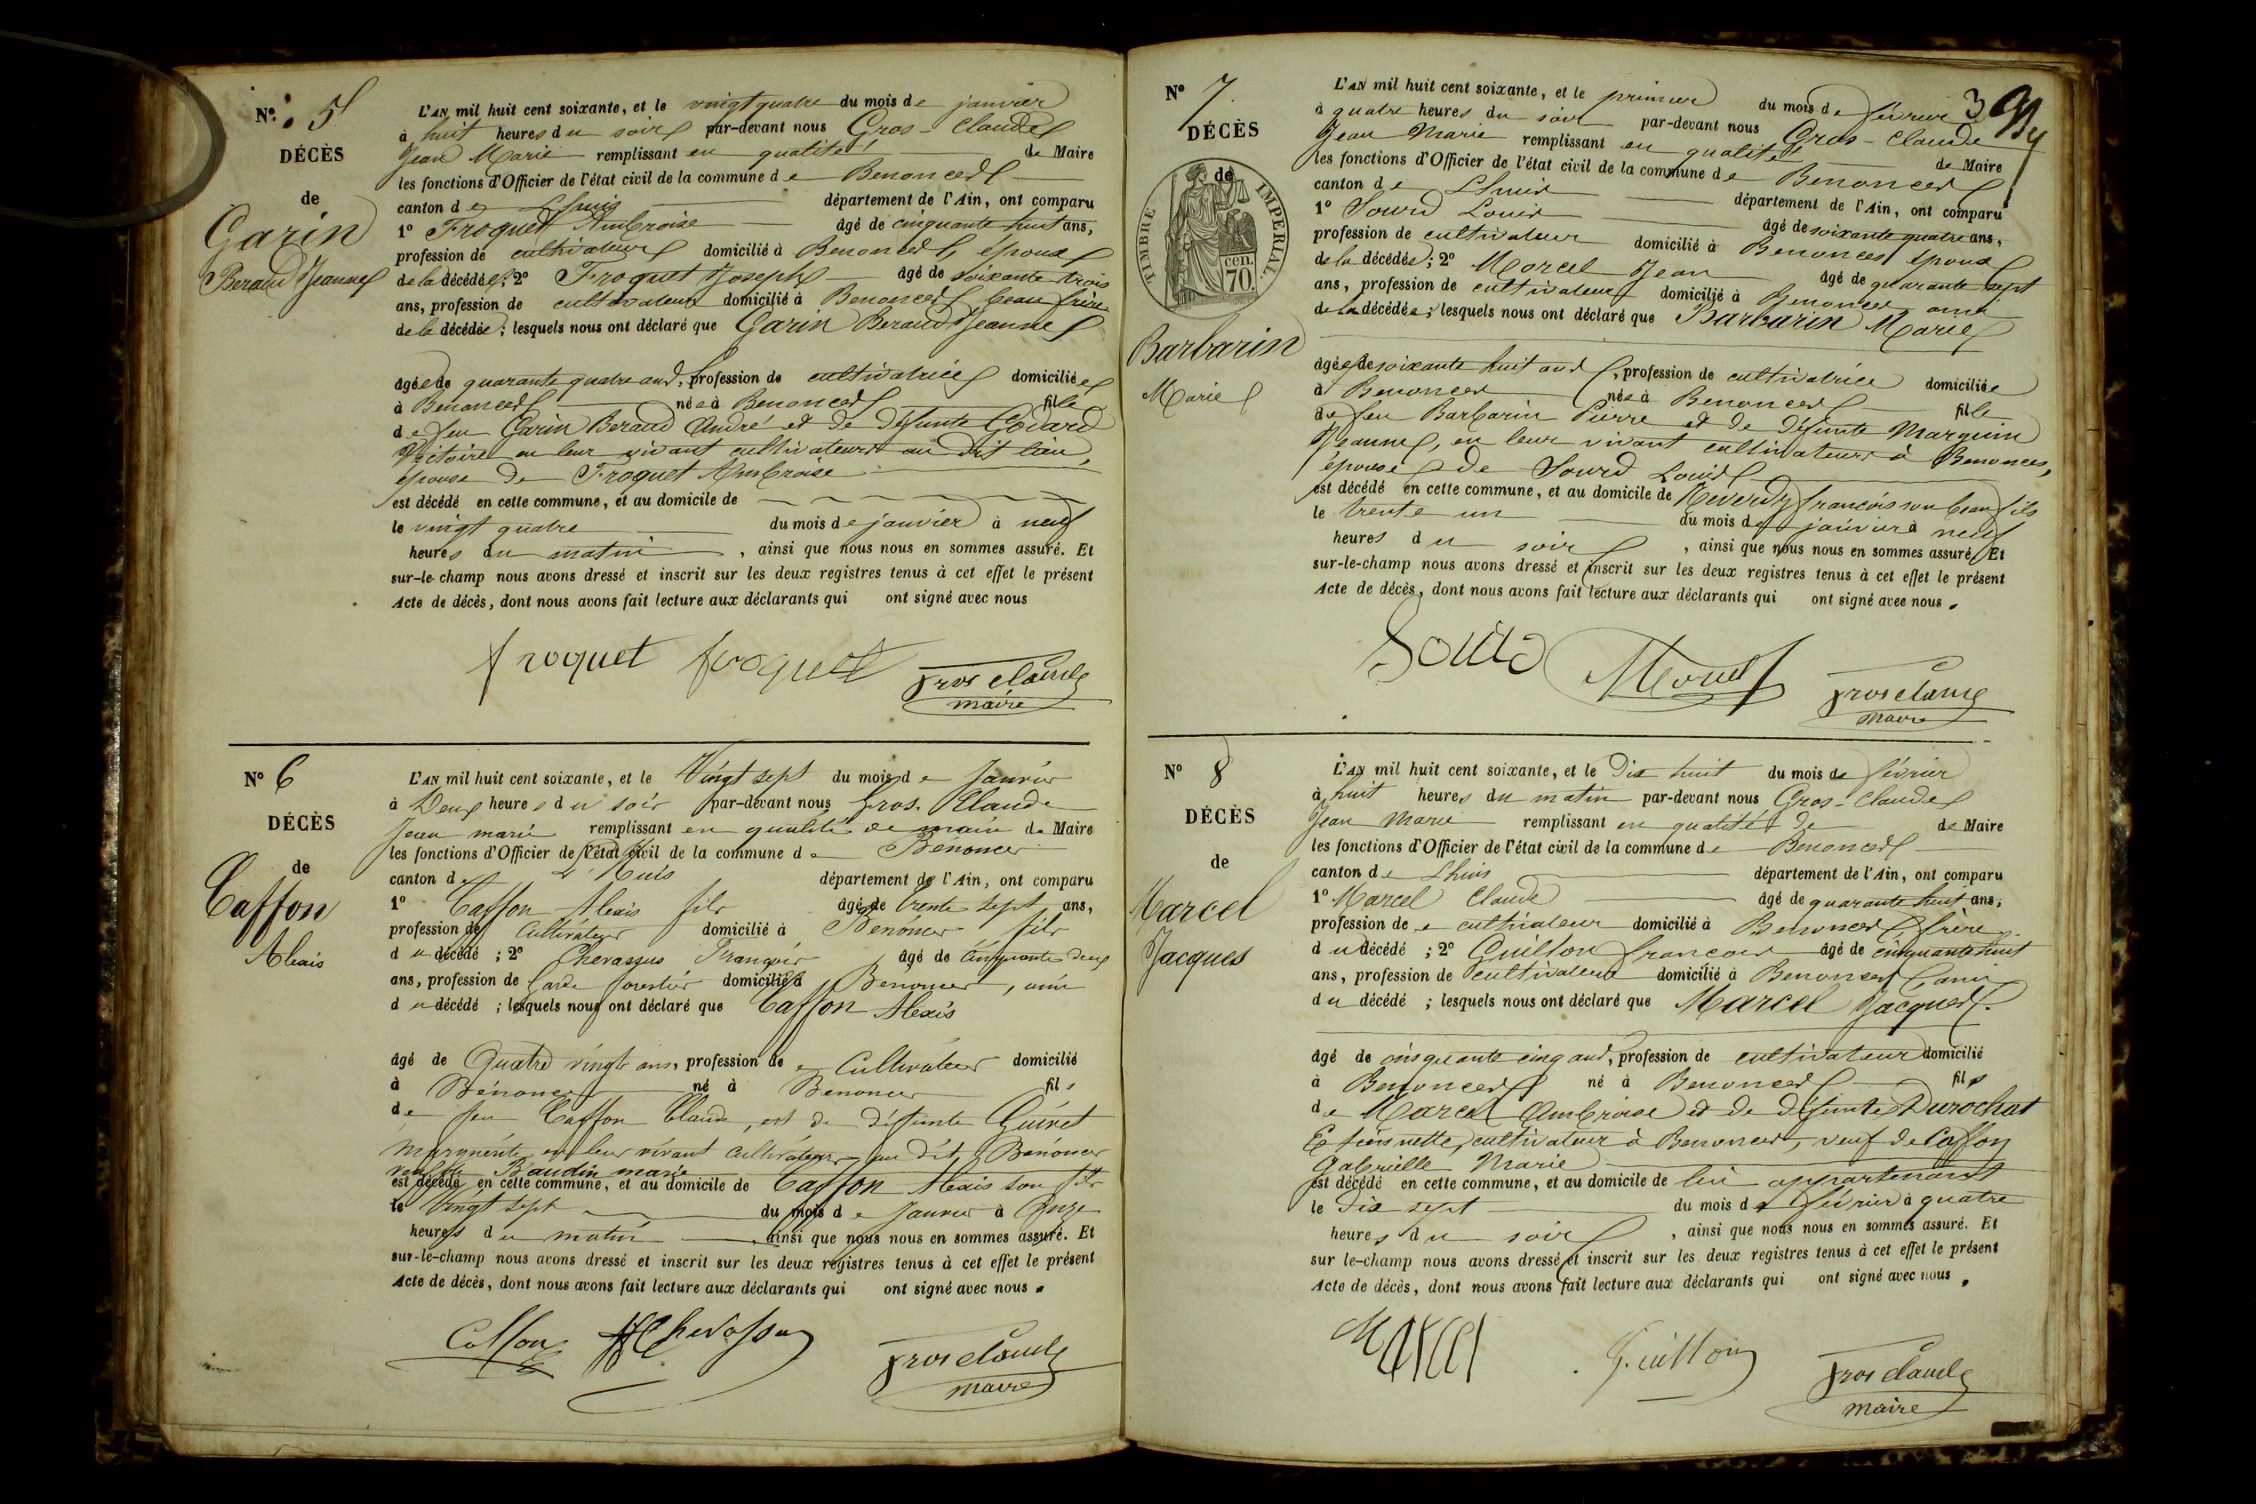 N° 5
DÉCÈS
de
Garin
Beraud Jeanne
L'AN mil huit cent soixante, et le vingt quatre du mois de janvier
à huit heures du soir par-devant nous Gros-Claude
Jean Marie remplissant en qualité de Maire
les fonctions d'Officier de l'état civil de la commune de Benonces
canton de Lhuis département de l'Ain, ont comparu
1° Froquet Ambroise âgé de cinquante huit ans,
profession de cultivateur domicilié à Benonces, époux
de la décédée; 2° Froquet Joseph âgé de soixante trois
ans, profession de cultivateur domicilié à Benonces beau frère
de la décédée; lesquels nous ont déclaré que Garin Beraud Jeanne
âgée de quarante quatre ans, profession de cultivatrice domiciliée
à Benonces née à Benonces fille
de feu Garin Beraud André et de défunte Godard
Victoire en leur vivant cultivateurs au dit lieu,
épouse de Froquet Ambroise
est décédé en cette commune, et au domicile de
le vingt quatre du mois de janvier à neuf
heures du matin, ainsi que nous nous en sommes assuré. Et
sur-le champ nous avons dressé et inscrit sur les deux registres tenus à cet effet le présent
Acte de décès, dont nous avons fait lecture aux déclarants qui ont signé avec nous
froquet froquet gros claude
maire
N° 6
DÉCÈS
de
Caffon
Alexis
L'AN mil huit cent soixante, et le Vingt sept du mois de Janvier
à Deux heures du soir par-devant nous Gros-Claude
Jean marie remplissant en qualité de maire de Maire
les fonctions d'Officier de l'état civil de la commune de Benonces
canton de L'Huis département de l'Ain, ont comparu
1° Caffon Alexis fils âgé de trente sept ans,
profession de Cultivateur domicilié à Bénonces fils
du décédé; 2° Chevassus François âgé de cinquante deux
ans, profession de Garde forestier domicilié à Benonces, ami
du décédé; lesquels nous ont déclaré que Caffon Alexis
âgé de Quatre vingt ans, profession de Cultivateur domicilié
à Bénonces né à Benonces fils
de feu Caffon Claude, et de défunte Guinet
Marguerite en leur vivant cultivateurs au dit Bénonces
veuf de Baudin marie
est décédé en cette commune, et au domicile de Caffon Alexis son fils
le Vingt sept du mois de Janvier à Onze
heures du matin, ainsi que nous nous en sommes assuré. Et
sur-le-champ nous avons dressé et inscrit sur les deux registres tenus à cet effet le présent
Acte de décès, dont nous avons fait lecture aux déclarants qui ont signé avec nous.
Caffon Chevassus gros claude
maire
3
N° 7
DÉCÈS
de
TIMBRE IMPERIAL.
cen.
70.
Barbarin
Marie
L'AN mil huit cent soixante, et le premier du mois de février
à quatre heures du soir par-devant nous Gros-Claude
Jean Marie remplissant en qualité de Maire
les fonctions d'Officier de l'état civil de la commune de Benonces
canton de Lhuis département de l'Ain, ont comparu
1° Sourd Louis âgé de soixante quatre ans,
profession de cultivateur domicilié à Benonces époux
de la décédée; 2° Morcel Jean âgé de quarante sept
ans, profession de cultivateur domicilié à Benonces ami
de la décédée; lesquels nous ont déclaré que Barbarin Marie
âgée de soixante huit ans, profession de cultivatrice domiciliée
à Benonces née à Benonces fille
de feu Barbarin Pierre et de défunte Marguin
Jeanne, en leur vivant cultivateurs à Benonces,
épouse de Sourd Louis
est décédé en cette commune, et au domicile de Reverdy françois son beau fils
le trente un du mois de janvier à neuf
heures du soir, ainsi que nous nous en sommes assuré. Et
sur-le-champ nous avons dressé et inscrit sur les deux registres tenus à cet effet le présent
Acte de décès, dont nous avons fait lecture aux déclarants qui ont signé avec nous.
Sourd Morcel gros claude
maire
N° 8
DÉCÈS
de
Marcel
Jacques
L'AN mil huit cent soixante, et le Dix huit du mois de février
à huit heures du matin par-devant nous Gros-Claude
Jean Marie remplissant en qualité de de Maire
les fonctions d'Officier de l'état civil de la commune de Benonces
canton de Lhuis département de l'Ain, ont comparu
1° Marcel Claude âgé de quarante huit ans,
profession de cultivateur domicilié à Benonces frère
du décédé; 2° Guillon françois âgé de cinquante huit
ans, profession de cultivateur domicilié à Benonces ami
du décédé; lesquels nous ont déclaré que Marcel Jacques.
âgé de cinquante cinq ans, profession de cultivateur domicilié
à Benonces né à Benonces fils
de Marcel Ambroise et de défunte Durochat
Etiennette, cultivateur à Benonces, veuf de Caffon
Gabrielle Marie
est décédé en cette commune, et au domicile de lui appartenant
le Dix sept du mois de février à quatre
heures du soir, ainsi que nous nous en sommes assuré. Et
sur le-champ nous avons dressé et inscrit sur les deux registres tenus à cet effet le présent
Acte de décès, dont nous avons fait lecture aux déclarants qui ont signé avec nous.
Marcel Guillon gros claude
maire